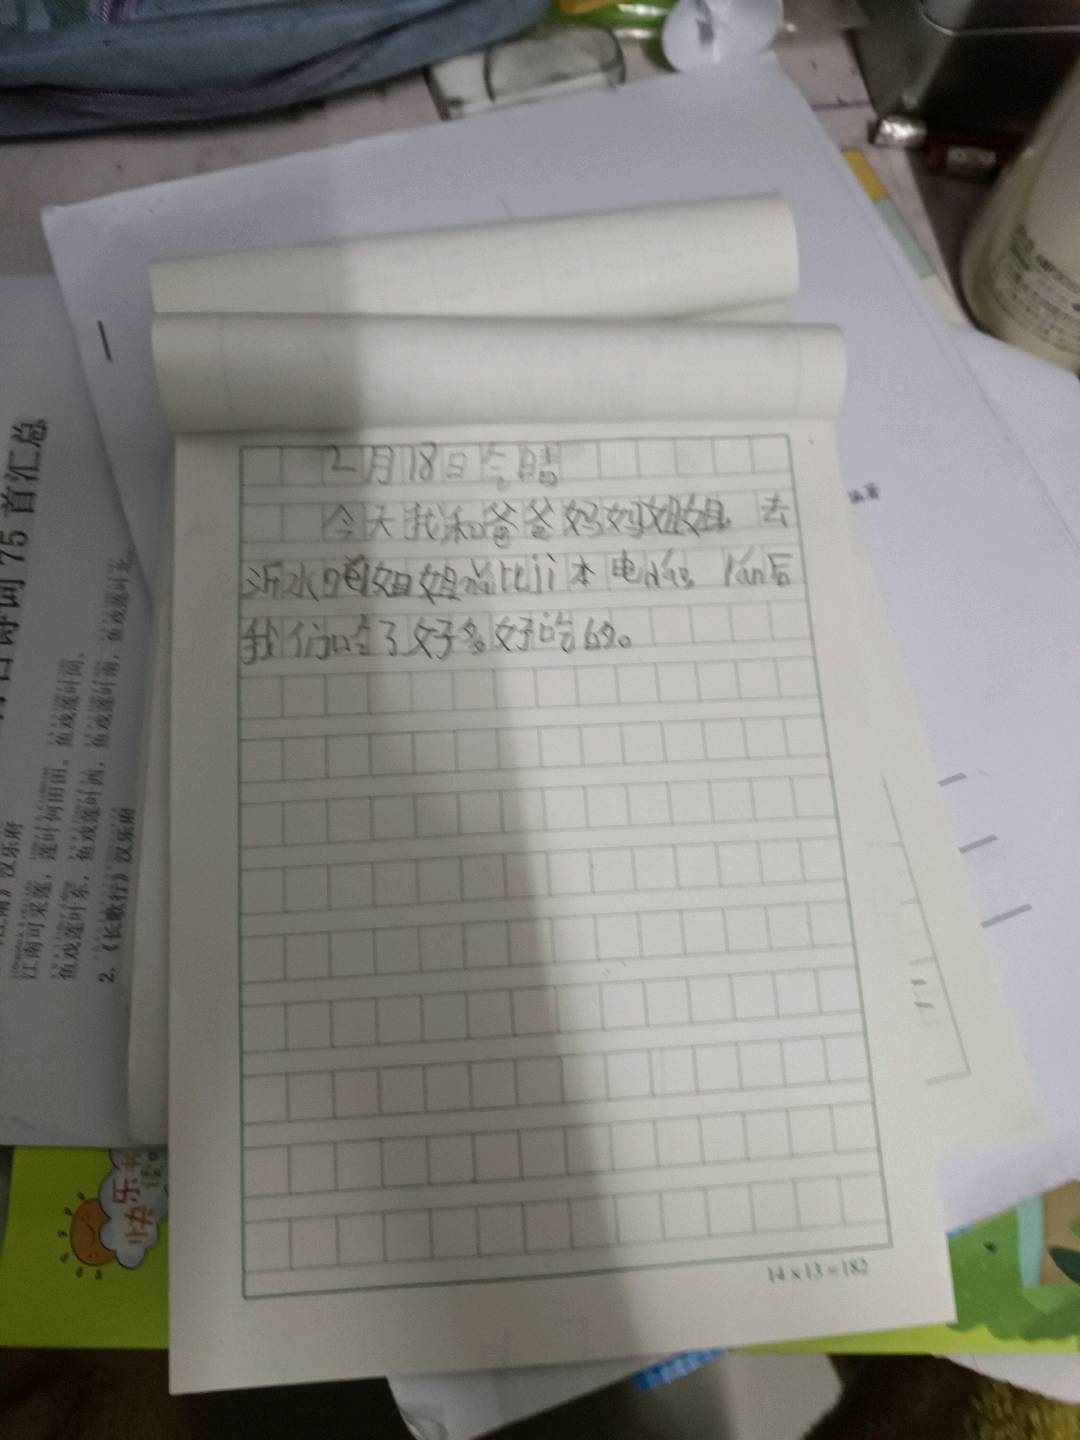 2月18日 晴
今天我和爸爸妈妈姐姐 去
沂水 姐姐 bǐjì本电 rán后
我们吃了好多好吃的。
14×13=182
诗词75首汇总
汉乐府
江南可采莲，莲叶何田田，鱼戏莲叶间，
鱼戏莲叶东，鱼戏莲叶西，鱼戏莲叶南，鱼戏莲叶北。
2.《长歌行》汉乐府
快乐